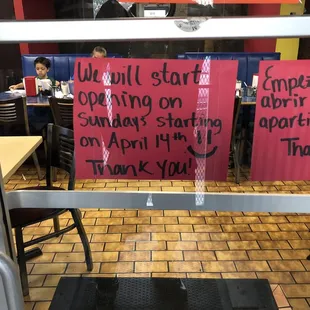 We will start
opening on
Sundays starting
on April 14th
Thank you!
abrir
Tha